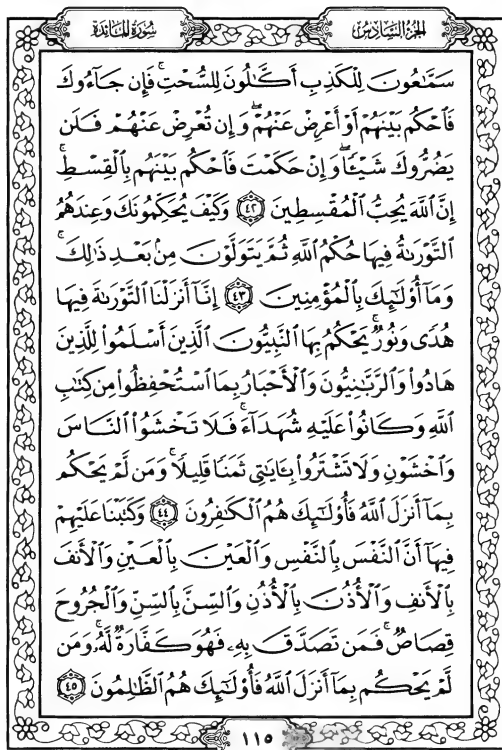 الجزء السادس
سورة المائدة
سَمَّٰعُونَ لِلْكَذِبِ أَكَّٰلُونَ لِلسُّحْتِۚ فَإِن جَآءُوكَ
فَٱحْكُم بَيْنَهُمْ أَوْ أَعْرِضْ عَنْهُمْۖ وَإِن تُعْرِضْ عَنْهُمْ فَلَن
يَضُرُّوكَ شَيْـًٔاۖ وَإِنْ حَكَمْتَ فَٱحْكُم بَيْنَهُم بِٱلْقِسْطِۚ
إِنَّ ٱللَّهَ يُحِبُّ ٱلْمُقْسِطِينَ ٤٢ وَكَيْفَ يُحَكِّمُونَكَ وَعِندَهُمُ
ٱلتَّوْرَىٰةُ فِيهَا حُكْمُ ٱللَّهِ ثُمَّ يَتَوَلَّوْنَ مِنۢ بَعْدِ ذَٰلِكَۚ
وَمَآ أُو۟لَٰٓئِكَ بِٱلْمُؤْمِنِينَ ٤٣ إِنَّآ أَنزَلْنَا ٱلتَّوْرَىٰةَ فِيهَا
هُدًى وَنُورٌۚ يَحْكُمُ بِهَا ٱلنَّبِيُّونَ ٱلَّذِينَ أَسْلَمُوا۟ لِلَّذِينَ
هَادُوا۟ وَٱلرَّبَّٰنِيُّونَ وَٱلْأَحْبَارُ بِمَا ٱسْتُحْفِظُوا۟ مِن كِتَٰبِ
ٱللَّهِ وَكَانُوا۟ عَلَيْهِ شُهَدَآءَۚ فَلَا تَخْشَوُا۟ ٱلنَّاسَ
وَٱخْشَوْنِ وَلَا تَشْتَرُوا۟ بِـَٔايَٰتِى ثَمَنًا قَلِيلًاۚ وَمَن لَّمْ يَحْكُم
بِمَآ أَنزَلَ ٱللَّهُ فَأُو۟لَٰٓئِكَ هُمُ ٱلْكَٰفِرُونَ ٤٤ وَكَتَبْنَا عَلَيْهِمْ
فِيهَآ أَنَّ ٱلنَّفْسَ بِٱلنَّفْسِ وَٱلْعَيْنَ بِٱلْعَيْنِ وَٱلْأَنفَ
بِٱلْأَنفِ وَٱلْأُذُنَ بِٱلْأُذُنِ وَٱلسِّنَّ بِٱلسِّنِّ وَٱلْجُرُوحَ
قِصَاصٌۚ فَمَن تَصَدَّقَ بِهِۦ فَهُوَ كَفَّارَةٌ لَّهُۥۚ وَمَن
لَّمْ يَحْكُم بِمَآ أَنزَلَ ٱللَّهُ فَأُو۟لَٰٓئِكَ هُمُ ٱلظَّٰلِمُونَ ٤٥
١١٥